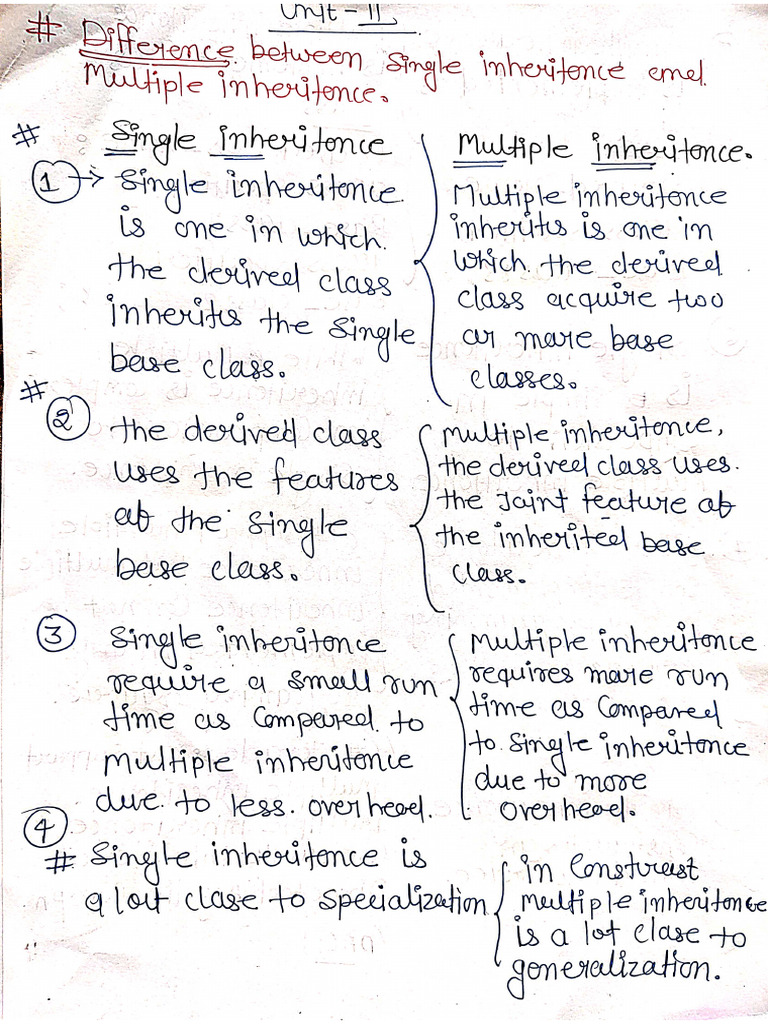 Unit - II
# Difference between Single inheritonce emd
Multiple inheritonce.
# Single inheritonce
① → Single inheritonce
is one in which
the derived class
inherits the single
base class.
Multiple inheritonce.
Multiple inheritonce
inherits is one in
which the derived
class acquire two
or more base
classes.
#
② the derived class
uses the features
of the single
base class.
multiple inheritonce,
the derived class uses
the Joint feature of
the inherited base
class.
③ Single inheritonce
require a small run
time as Compared to
multiple inheritonce
due to less overhead.
Multiple inheritonce
requires more run
time as Compared
to Single inheritonce
due to more
overhead.
④
# Single inheritonce is
a lot close to specialization
in Constrast
multiple inheritonce
is a lot close to
generalization.